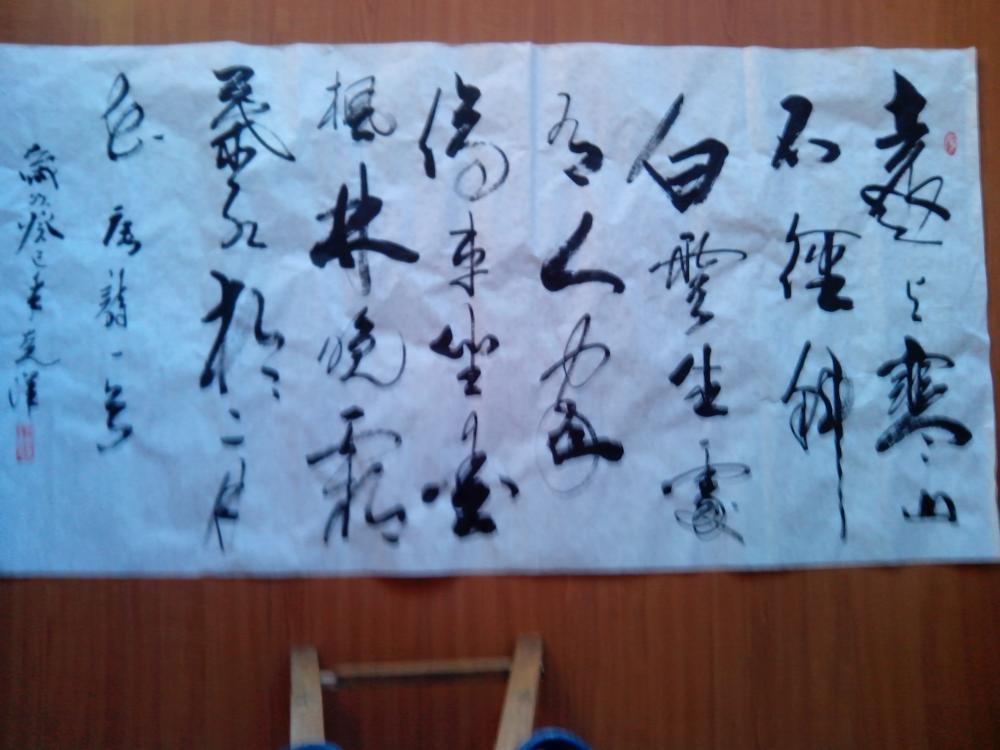 遠上寒山
石徑斜
白雲生處
有人家
停車坐愛
楓林晚霜
葉紅於二月
花 唐詩一首
歲次癸巳